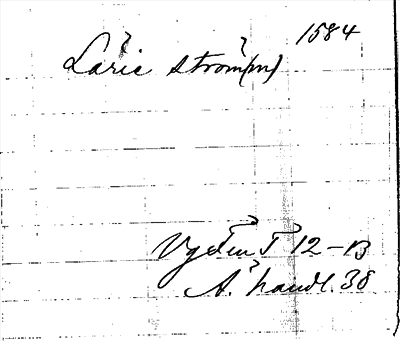 1584
Larie ström(m)
12-13
Å. handl. 38